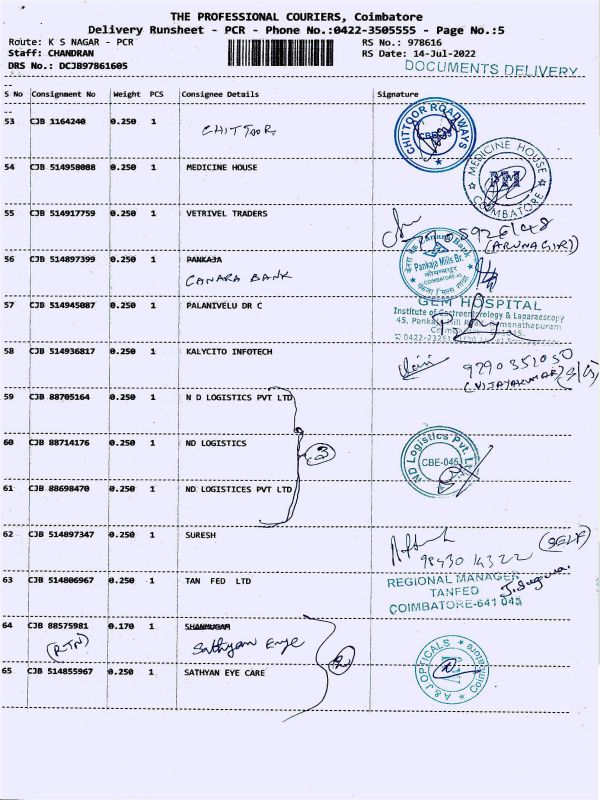 THE PROFESSIONAL COURIERS, Coimbatore
Delivery Runsheet - PCR - Phone No.:0422-3505555 - Page No.:5
Route: K S NAGAR - PCR RS No.: 978616
Staff: CHANDRAN RS Date: 14-Jul-2022
DRS No.: DCJB97861605 DOCUMENTS DELIVERY
S No Consignment No Weight PCS Consignee Details Signature
53 CJB 1164240 0.250 1 CHITTOOR CHITTOOR ROADWAYS
54 CJB 514958088 0.250 1 MEDICINE HOUSE MEDICINE HOUSE COIMBATORE
55 CJB 514917759 0.250 1 VETRIVEL TRADERS
(ARUNAGIRI)
56 CJB 514897399 0.250 1 PANKAJA Canara Bank Pankaja Mills Br.
CANARA BANK COIMBATORE-45
57 CJB 514945087 0.250 1 PALANIVELU DR C GEM HOSPITAL
Institute of Gastroenterology & Laparoscopy
45, Pankaja Mill Road, Ramanathapuram
Coimbatore
58 CJB 514936817 0.250 1 KALYCITO INFOTECH 9290352050
(VIJAYAKUMAR)
59 CJB 88705164 0.250 1 N D LOGISTICS PVT LTD
60 CJB 88714176 0.250 1 ND LOGISTICS 3 ND Logistics Pvt. Lt CBE-045
61 CJB 88698470 0.250 1 ND LOGISTICES PVT LTD
62 CJB 514897347 0.250 1 SURESH (SELF)
98430 14322
63 CJB 514806967 0.250 1 TAN FED LTD REGIONAL MANAGER
TANFED
COIMBATORE-641 045
64 CJB 88575981 0.170 1 SHANMUGAM
(RTN) Sathyan Eye 2
65 CJB 514855967 0.250 1 SATHYAN EYE CARE A & J OPTICALS Coimbatore